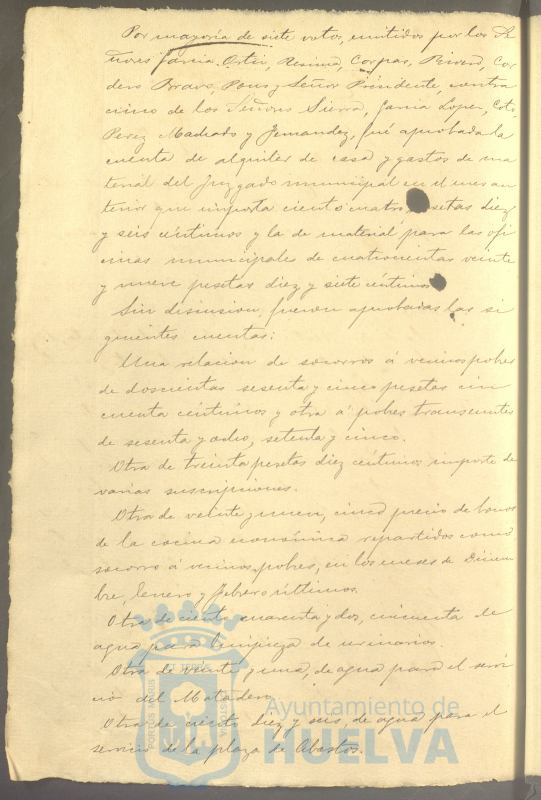 Por mayoría de siete votos, emitidos por los Se
ñores García Ortiz, Resimo, Corpas, Rivero, Cor
dero Bravo, Pons y Señor Presidente, contra
cinco de los Señores Sierra, García Lopez, Coto,
Perez Machado y Fernandez, fué aprobada la
cuenta de alquiler de casa y gastos de ma
terial del Juzgado municipal en el mes an
terior que importa ciento cuatro setas diez
y seis céntimos y la de material para las ofi
cinas municipales de cuatrocientas veinte
y nueve pesetas diez y siete céntimos
Sin discusion, fueron aprobadas las si
guientes cuentas:
Una relacion de socorros á vecinos pobres
de doscientas sesenta y cinco pesetas cin
cuenta céntimos y otra á pobres transeuntes
de sesenta y ocho, setenta y cinco.
Otra de treinta pesetas diez céntimos importe de
varias suscripciones.
Otra de veinte y nueve, cinco precio de bonos
de la cocina económica repartidos como
socorro á vecinos pobres, en los meses de Diciem
bre, Enero y Febrero últimos.
Otra de ciento cuarenta y dos, cincuenta de
agua para limpieza de urinarios.
Otra de veinte y una, de agua para el servi
cio del Matadero.
Otra de ciento diez y seis, de agua para el
servicio de la plaza de Abastos.
PORTUS MARIS ET TERRÆ CUSTODIA
Ayuntamiento de
HUELVA